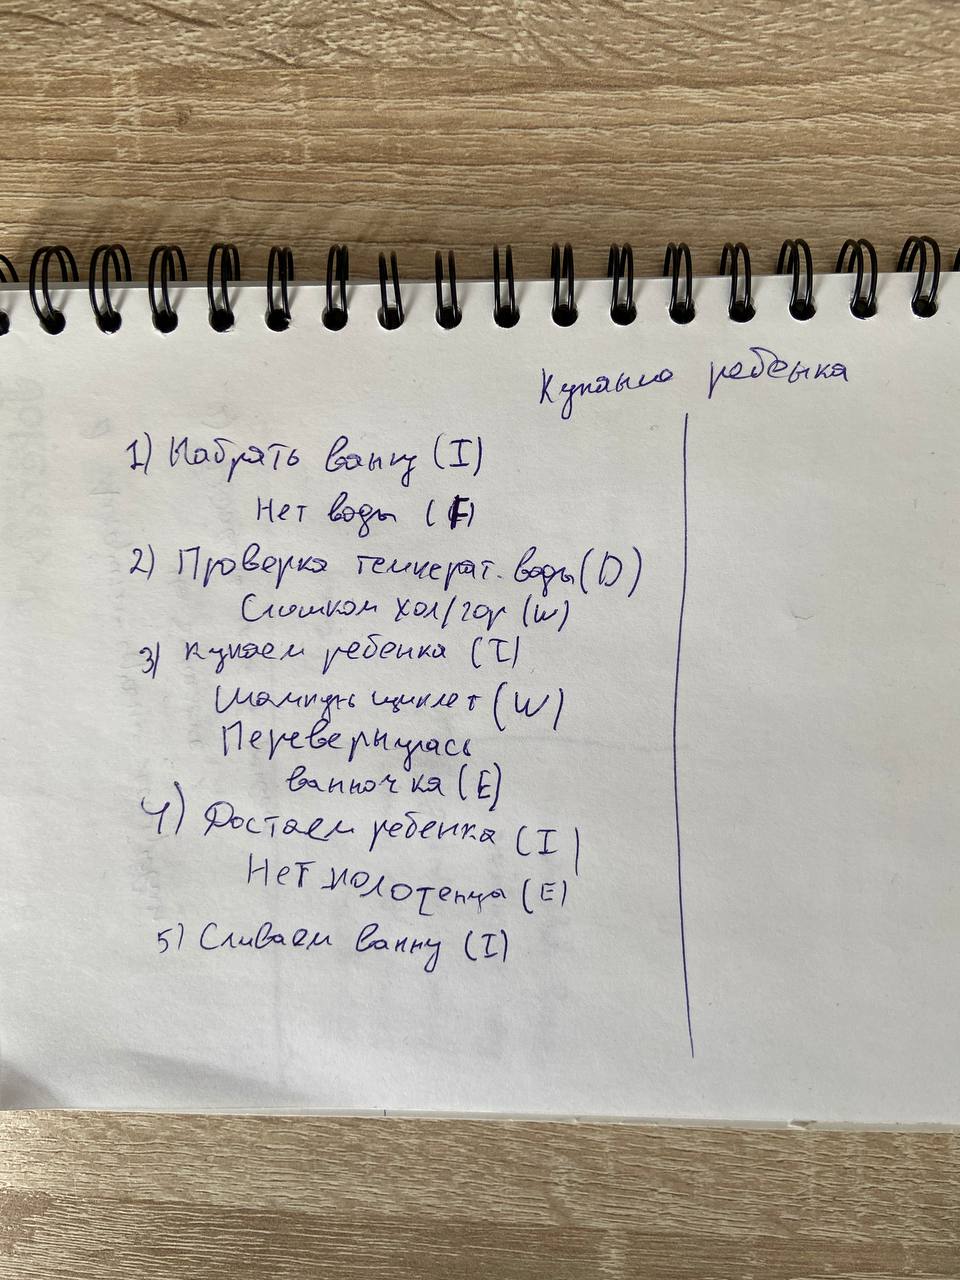 Купаем ребенка
1) Набрать ванну (I)
Нет воды (F)
2) Проверка температ. воды (D)
Слишком хол/гор (W)
3) Купаем ребенка (I)
Шампунь щиплет (W)
Перевернулась
ванночка (E)
4) Достаем ребенка (I)
Нет полотенца (E)
5) Сливаем ванну (I)